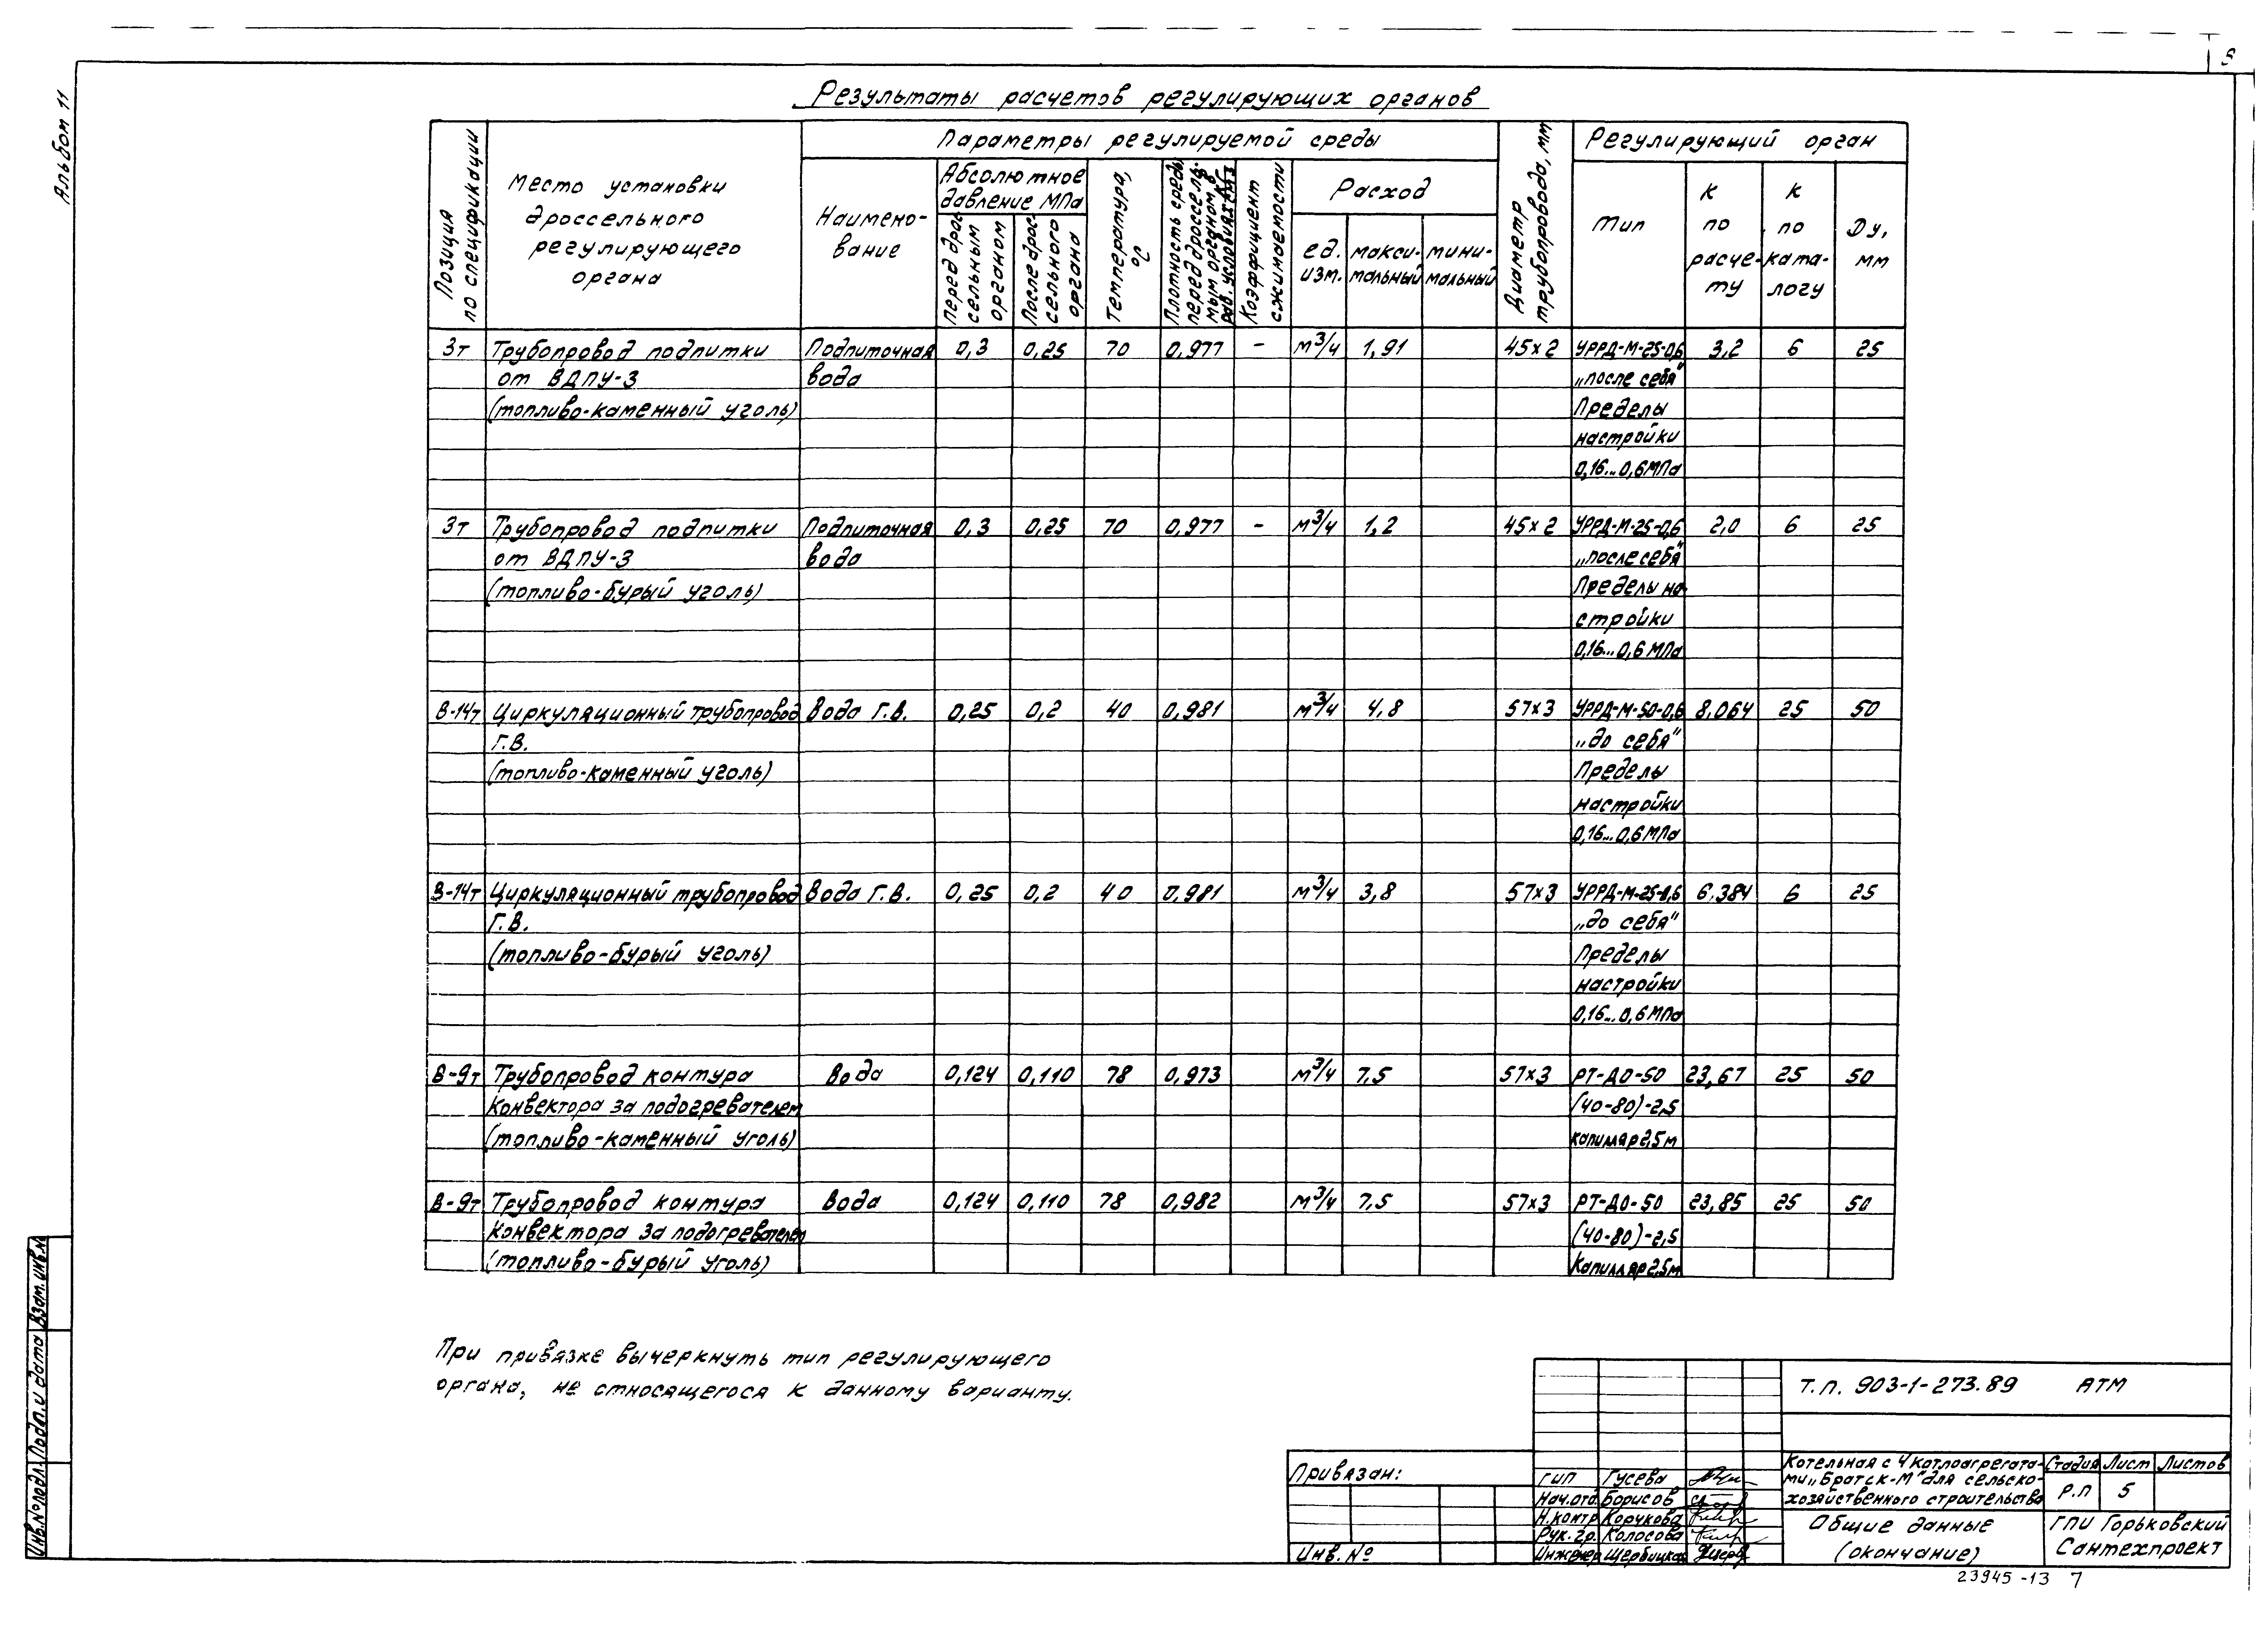 5
Альбом 11
Результаты расчетов регулирующих органов
Позиция по спецификации
Место установки дроссельного регулирующего органа
Параметры регулируемой среды
Наимено-вание
Абсолютное давление МПа
перед дрос-сельным органом
После дрос-сельного органа
Температура, °С
Плотность среды перед дроссель-ным органом в раб. условиях
Коэффициент сжимаемости
Расход
ед. изм.
макси-мальный
мини-мальный
Диаметр трубопровода, мм
Регулирующий орган
Тип
К по расче-ту
К по ката-логу
Ду, мм
3т Трубопровод подпитки Подпиточная 0,3 0,25 70 0,977 – м³/ч 1,91 45×2 УРРД-М-25-0,6 3,2 6 25
от ВДПУ-3 вода „после себя"
(топливо-каменный уголь) Пределы
настройки
0,16...0,6МПа
3т Трубопровод подпитки Подпиточная 0,3 0,25 70 0,977 – м³/ч 1,2 45×2 УРРД-М-25-0,6 2,0 6 25
от ВДПУ-3 вода „после себя"
(топливо-бурый уголь) Пределы на-
стройки
0,16...0,6МПа
В-14т Циркуляционный трубопровод Вода Г.В. 0,25 0,2 40 0,981 м³/ч 4,8 57×3 УРРД-М-50-0,6 8,064 25 50
Г.В. „до себя"
(топливо-каменный уголь) Пределы
настройки
0,16...0,6МПа
В-14т Циркуляционный трубопровод Вода Г.В. 0,25 0,2 40 0,981 м³/ч 3,8 57×3 УРРД-М-25-0,6 6,384 6 25
Г.В. „до себя"
(топливо-бурый уголь) Пределы
настройки
0,16...0,6МПа
В-9т Трубопровод контура Вода 0,124 0,110 78 0,973 м³/ч 7,5 57×3 РТ-ДО-50 23,67 25 50
Конвектора за подогревателем (40-80)-2,5
(топливо-каменный уголь) капилляр 2,5м
В-9т Трубопровод контура Вода 0,124 0,110 78 0,982 м³/ч 7,5 57×3 РТ-ДО-50 23,85 25 50
Конвектора за подогревателем (40-80)-2,5
(топливо-бурый уголь) Капилляр 2,5м
При привязке вычеркнуть тип регулирующего
органа, не относящегося к данному варианту.
Инв.№подл. Подп.и дата Взам.инв.№
Привязан:
Инв. №
Т.п. 903-1-273.89 АТМ
ГИП Гусева
Нач.отд. Борисов
Н.контр Корчкова
Рук.гр. Колосова
Инженер Щербицкая
Котельная с 4 котлоагрегата-
ми „Братск-М" для сельско-
хозяйственного строительства
Стадия Лист Листов
Р.П 5
Общие данные
(окончание)
ГПИ Горьковский
Сантехпроект
23945-13 7